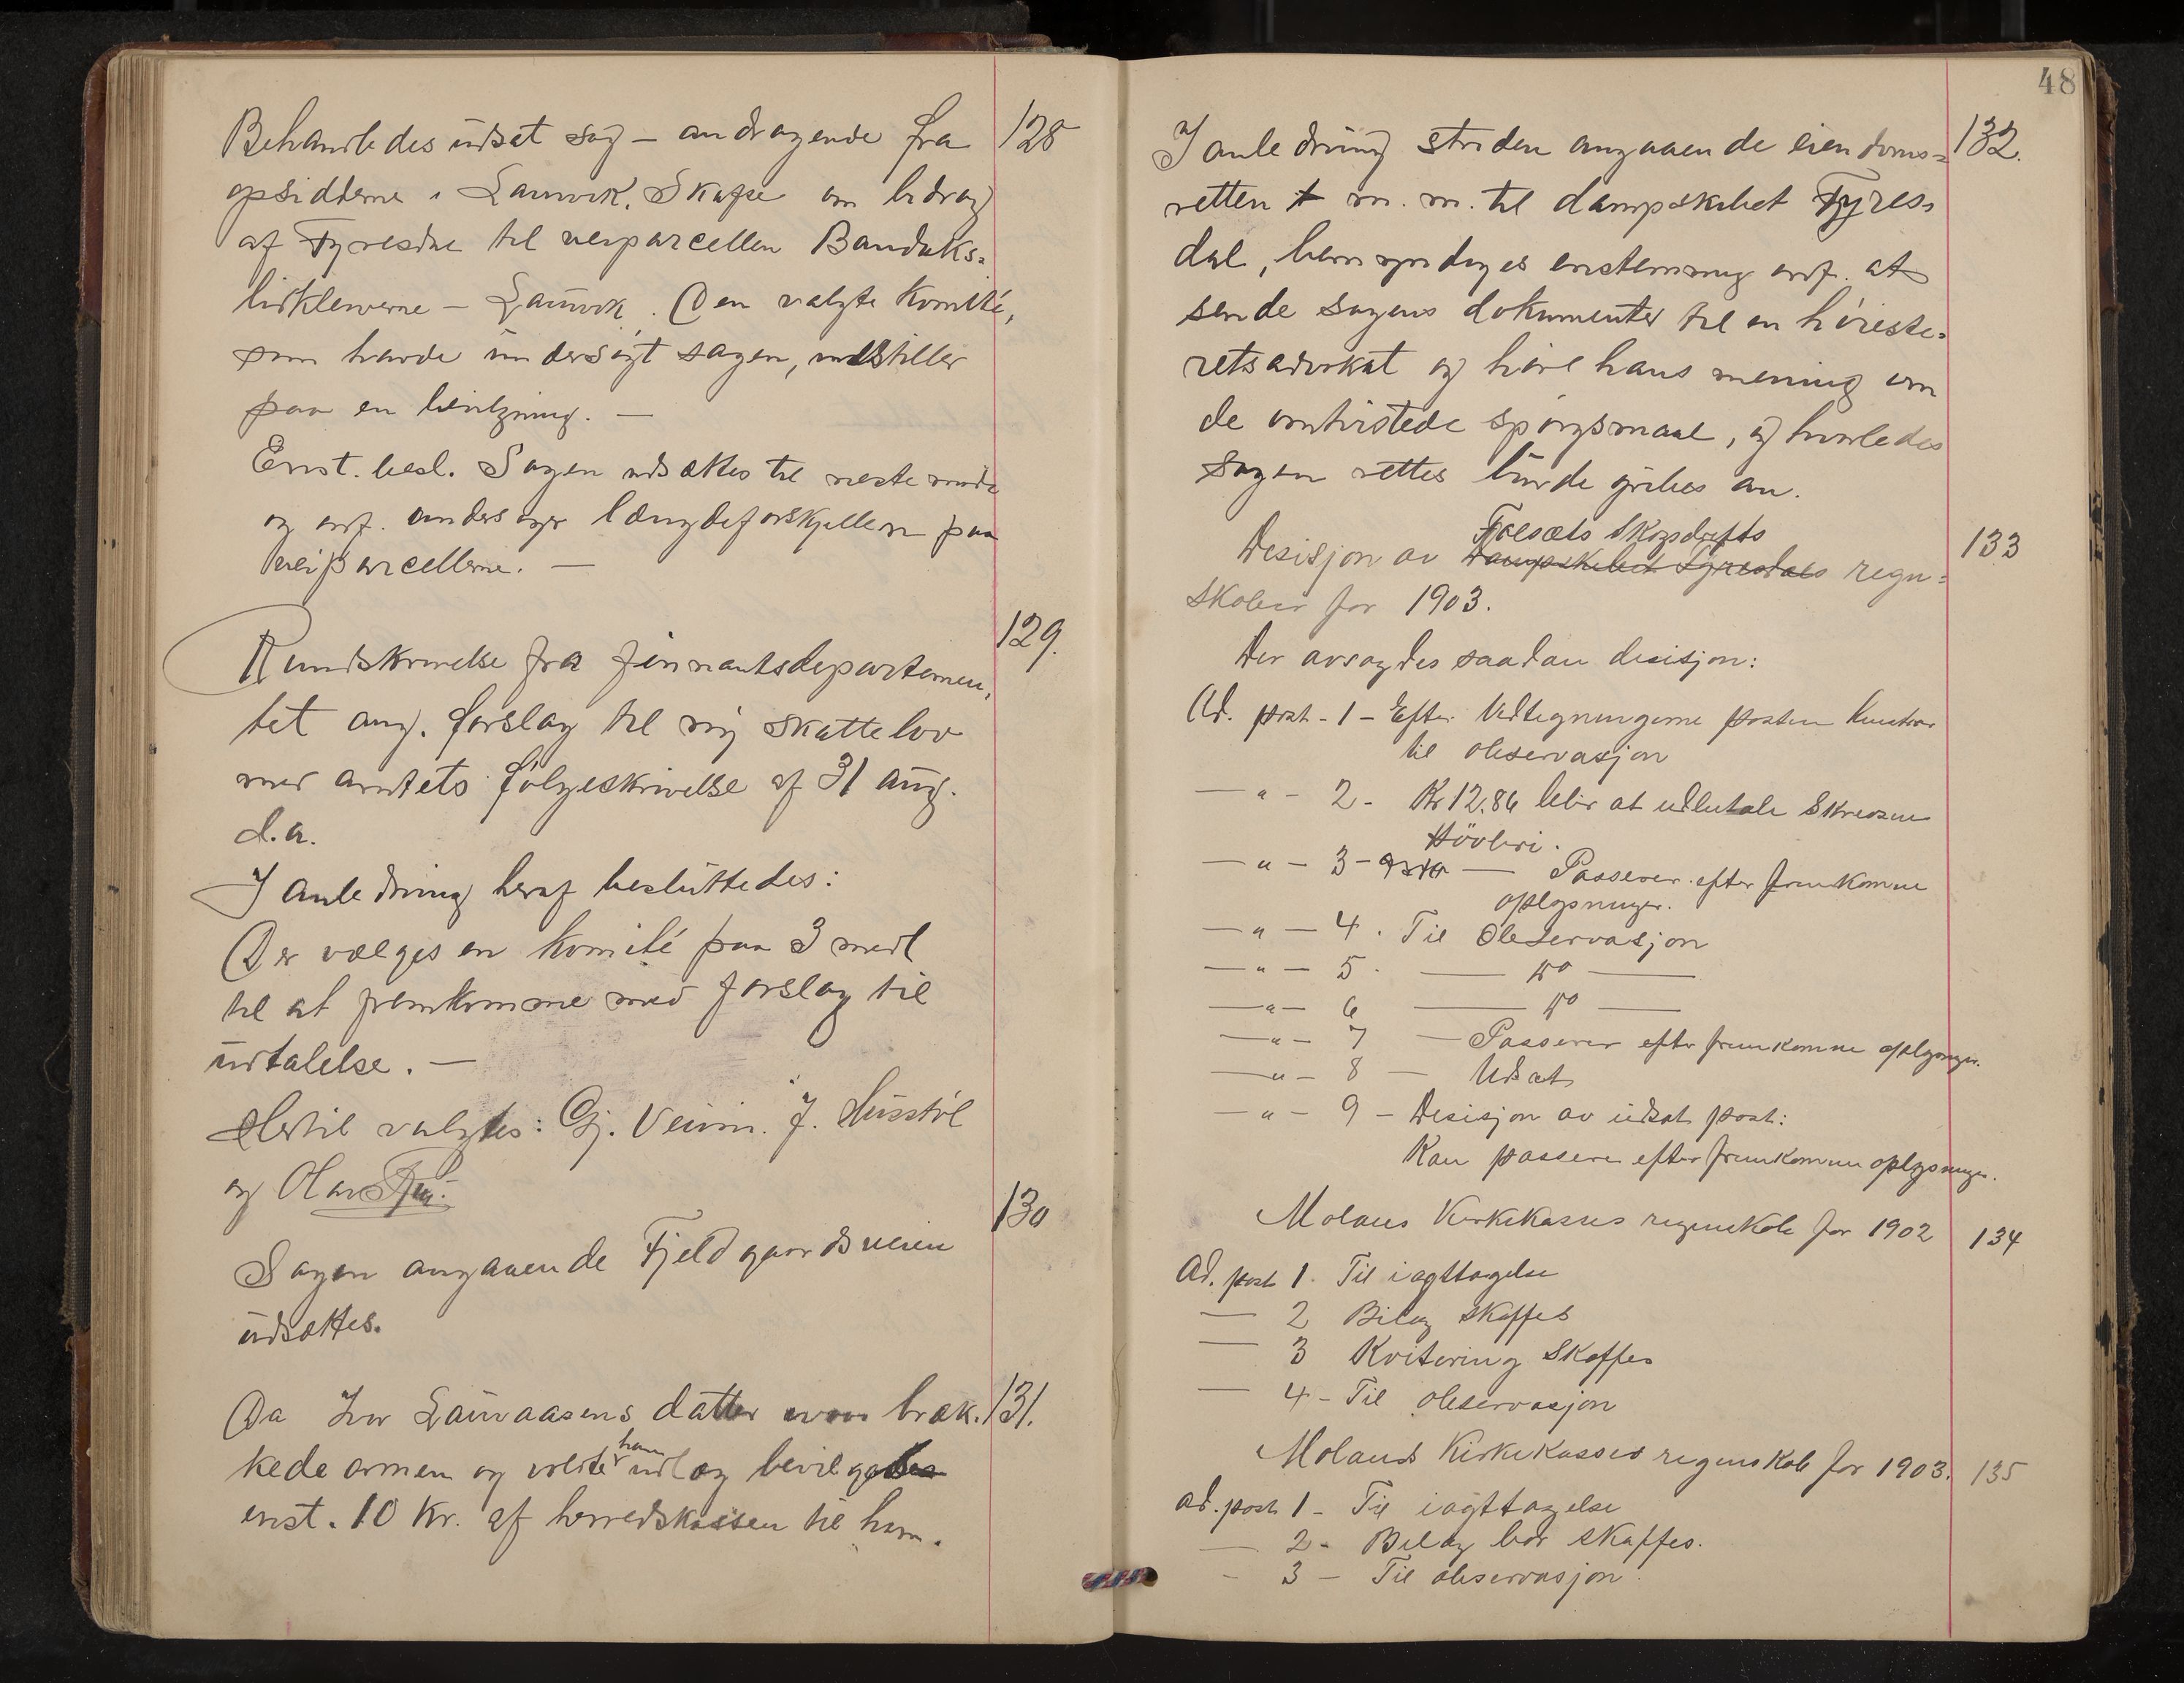 Behandledes udsat sag – andragende fra 128
opsidderne i Lauvvik, Skafse om bidrag
af Tyresdal til veiparcellen Bandaks-
lidklevene – Lauvvik. Den valgte komité,
som havde undersøgt sagen, indstiller
paa en bevilgning. –
Enst. besl. Sagen udsættes til næste møde
og orf. undersøger længdeforskjellen paa
veiparcellerne. –
Rundskrivelse fra finnantsdepartemen- 129.
tet ang. forslag til ny skattelov
med amtets følgeskrivelse af 31 aug.
d.a.
I anledning heraf besluttedes:
Der vælges en komité paa 3 medl
til at fremkomme med forslag til
udtalelse. –
Hertil valgtes: Gj. Veum. J. Husstøl
og Olav
Sagen angaaende Fjeldgaardsveien 130
udsættes.
Da Ivar Lauvaasens datter bræk- 131.
kede armen og voldte ham udlæg bevilgedes
enst. 10 Kr. af herredskassen til ham.
48
I anledning striden angaaende eiendoms- 132.
retten m. m. til dampskibet Tyres-
dal, bemyndiges enstemmig orf. at
sende sagens dokumenter til en høieste-
retsadvokat og høre hans mening om
de omtvistede spørgsmaal, og hvorledes
sagen rettes burde gribes an.
Folesæts Skogsdrifts
Desisjon av Dampskibet Tyresdals regn- 133
skaber for 1903.
Der avsagdes saadan desisjon:
Ad. post - 1 - Efter Udtegningerne posten
til observasjon
— " - 2 - Kr 12.86 blir at udbetale
— " - 3 - — Passerer efter fremkomne
oplysninger.
— " — 4. Til Observasjon
— " — 5. — do —
— " — 6 — do —
— " — 7 — Passerer efter fremkomne oplysninger.
— " — 8 — Udsat
— " - 9 - Desisjon av udsat post:
Kan passere efter fremkomne oplysninger.
Molands Kirkekasses regnskab for 1902 134
Ad. post 1. Til iagttagelse
— 2 Bilag skaffes
— 3 Kvitering skaffes
— 4 - Til observasjon
Molands Kirkekasses regnskab for 1903. 135
ad. post 1 - Til iagttagelse
— 2 - Bilag bør skaffes.
- 3 - Til observasjon.